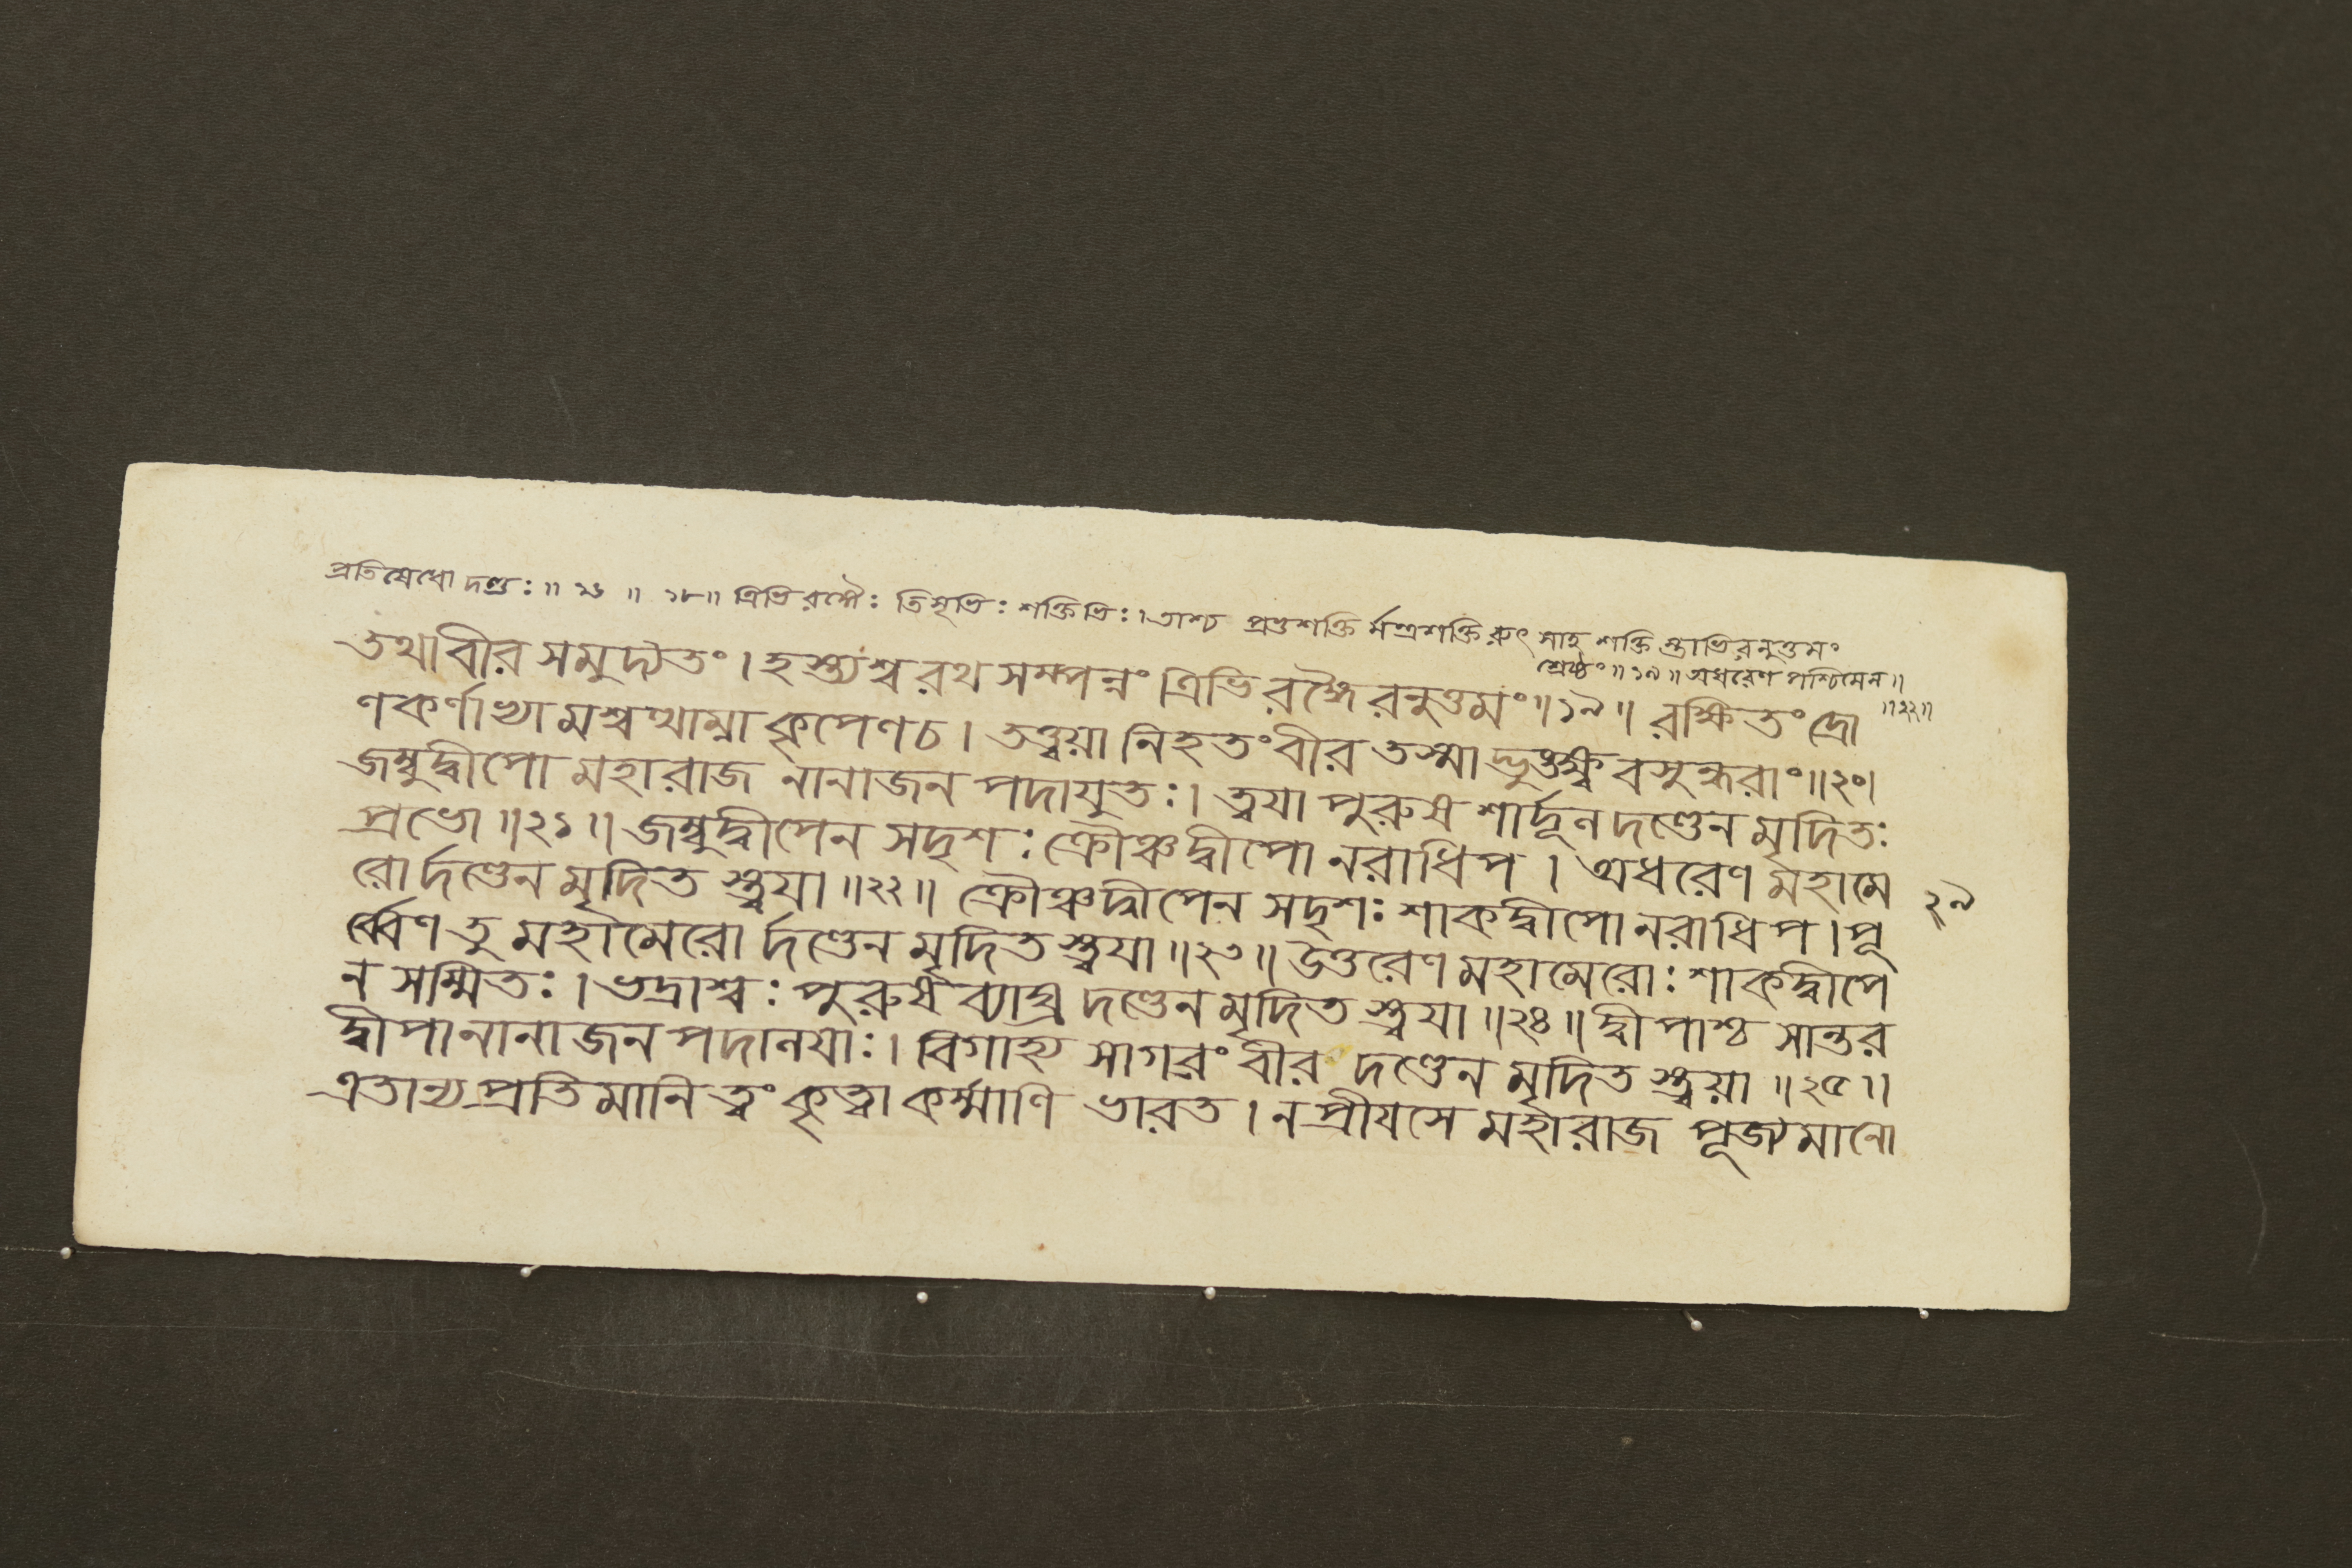 প্রতিষেধো দণ্ডঃ ॥ ১৬ ॥ ১৮ ॥ ত্রিভিরঙ্গৈঃ তিসৃভিঃ শক্তিভিঃ । তাশ্চ প্রভুশক্তি র্মন্ত্রশক্তি রুৎসাহ শক্তি স্তাভিরনুত্তমং
শ্রেষ্ঠং ॥ ১৯ ॥ অধরেণ পশ্চিমেন ॥
॥ ২২ ॥
তথা বীর সমুদ্যতং । হস্ত্যশ্ব রথ সম্পন্নং ত্রিভি রঙ্গৈ রনুত্তমং ॥ ১৯ ॥ রক্ষিতং দ্রো
ণকর্ণাভ্যা মশ্বত্থাম্না কৃপেণ চ । তত্ত্বয়া নিহতং বীর তস্মাদ্ভুঙ্ক্ষ্ব বসুন্ধরাং ॥ ২০ ।
জম্বুদ্বীপো মহারাজ নানাজন পদাযুতঃ । ত্বযা পুরুষ শার্দ্দূল দণ্ডেন মৃদিতঃ
প্রভো ॥ ২১ ॥ জম্বুদ্বীপেন সদৃশঃ ক্রৌঞ্চদ্বীপো নরাধিপ । অধরেণ মহামে
রো র্দণ্ডেন মৃদিত স্ত্বযা ॥ ২২ ॥ ক্রৌঞ্চদ্বীপেন সদৃশঃ শাকদ্বীপো নরাধিপ । পূ
২৯
র্ব্বেণ তু মহামেরো র্দণ্ডেন মৃদিত স্ত্বযা ॥ ২৩ ॥ উত্তরেণ মহামেরোঃ শাকদ্বীপে
ন সম্মিতঃ । ভদ্রাশ্বঃ পুরুষ ব্যাঘ্র দণ্ডেন মৃদিত স্ত্বযা ॥ ২৪ ॥ দ্বীপাশ্চ সান্তর
দ্বীপা নানা জন পদালযাঃ । বিগাহ্য সাগরং বীর দণ্ডেন মৃদিত স্ত্বয়া ॥ ২৫ ॥
এতান্য প্রতিমানি ত্বং কৃত্বা কর্ম্মাণি ভারত । ন প্রীযসে মহারাজ পূজ্যমানো